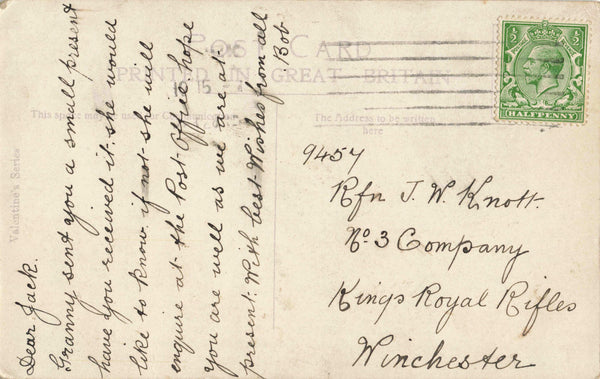 POST CARD
PRINTED IN GREAT BRITAIN
The Address to be written
here
Valentine's Series
½ ½
HALFPENNY
15
Dear Jack.
Granny sent you a small present
have you received it. she would
like to know. if not she will
enquire at the Post Office hope
you are well as we are at
present. With best Wishes from all
Bob
9457
Rfn J. W. Knott.
No 3 Company
Kings Royal Rifles
Winchester